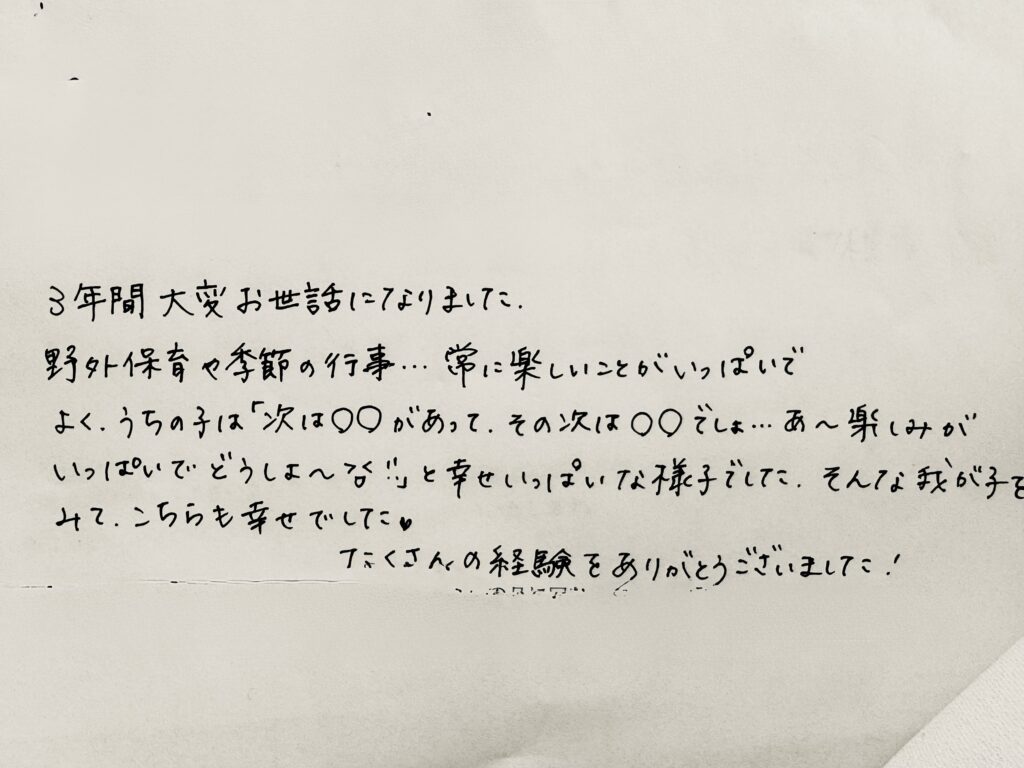 3年間 大変お世話になりました.
野外保育や季節の行事… 常に楽しいことがいっぱいで
よく、うちの子は「次は〇〇があって、その次は〇〇でしょ… あ〜楽しみが
いっぱいで どうしよ〜!!」と幸せいっぱいな様子でした. そんな我が子を
みて、こちらも幸せでした♥
たくさんの経験をありがとうございました!